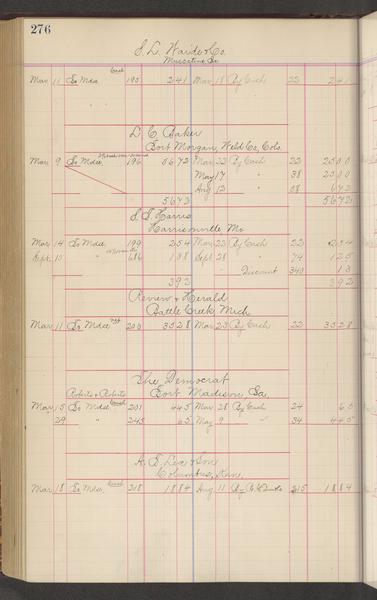 276
S. L. Waide & Co.
Muscatine Ia
Cash
Mar 11 To Mdse 195 2 41 Mar 18 By Cash 22 2 41
L. C. Baker
Fort Morgan, Weld Co, Colo.
Mar 9 To Mdse 196 56 72 Mar 22 By Cash 22 25 00
May 17 " 38 25 00
Aug 12 " 58 6 72
56 72 56 72
S. S. Harris
Harrisonville Mo
Mar 14 To Mdse 199 2 54 Mar 22 By Cash 22 2 54
Sept 10 " 686 1 38 Sept 28 " 74 1 25
" Discount 340 13
3 92 3 92
Review & Herald
Battle Creek Mich
Mar 11 To Mdse 200 35 28 Mar 23 By Cash 22 35 28
The Democrat
Roberts & Roberts Fort Madison Ia.
Mar 15 To Mdse Cash 201 4 45 Mar 28 By Cash 24 65
29 " 245 65 May 9 " 34 4 45
A. E. & Son
Columbus, Kan.
Mar 18 To Mdse Cash 218 18 84 Aug 11 By 215 18 84